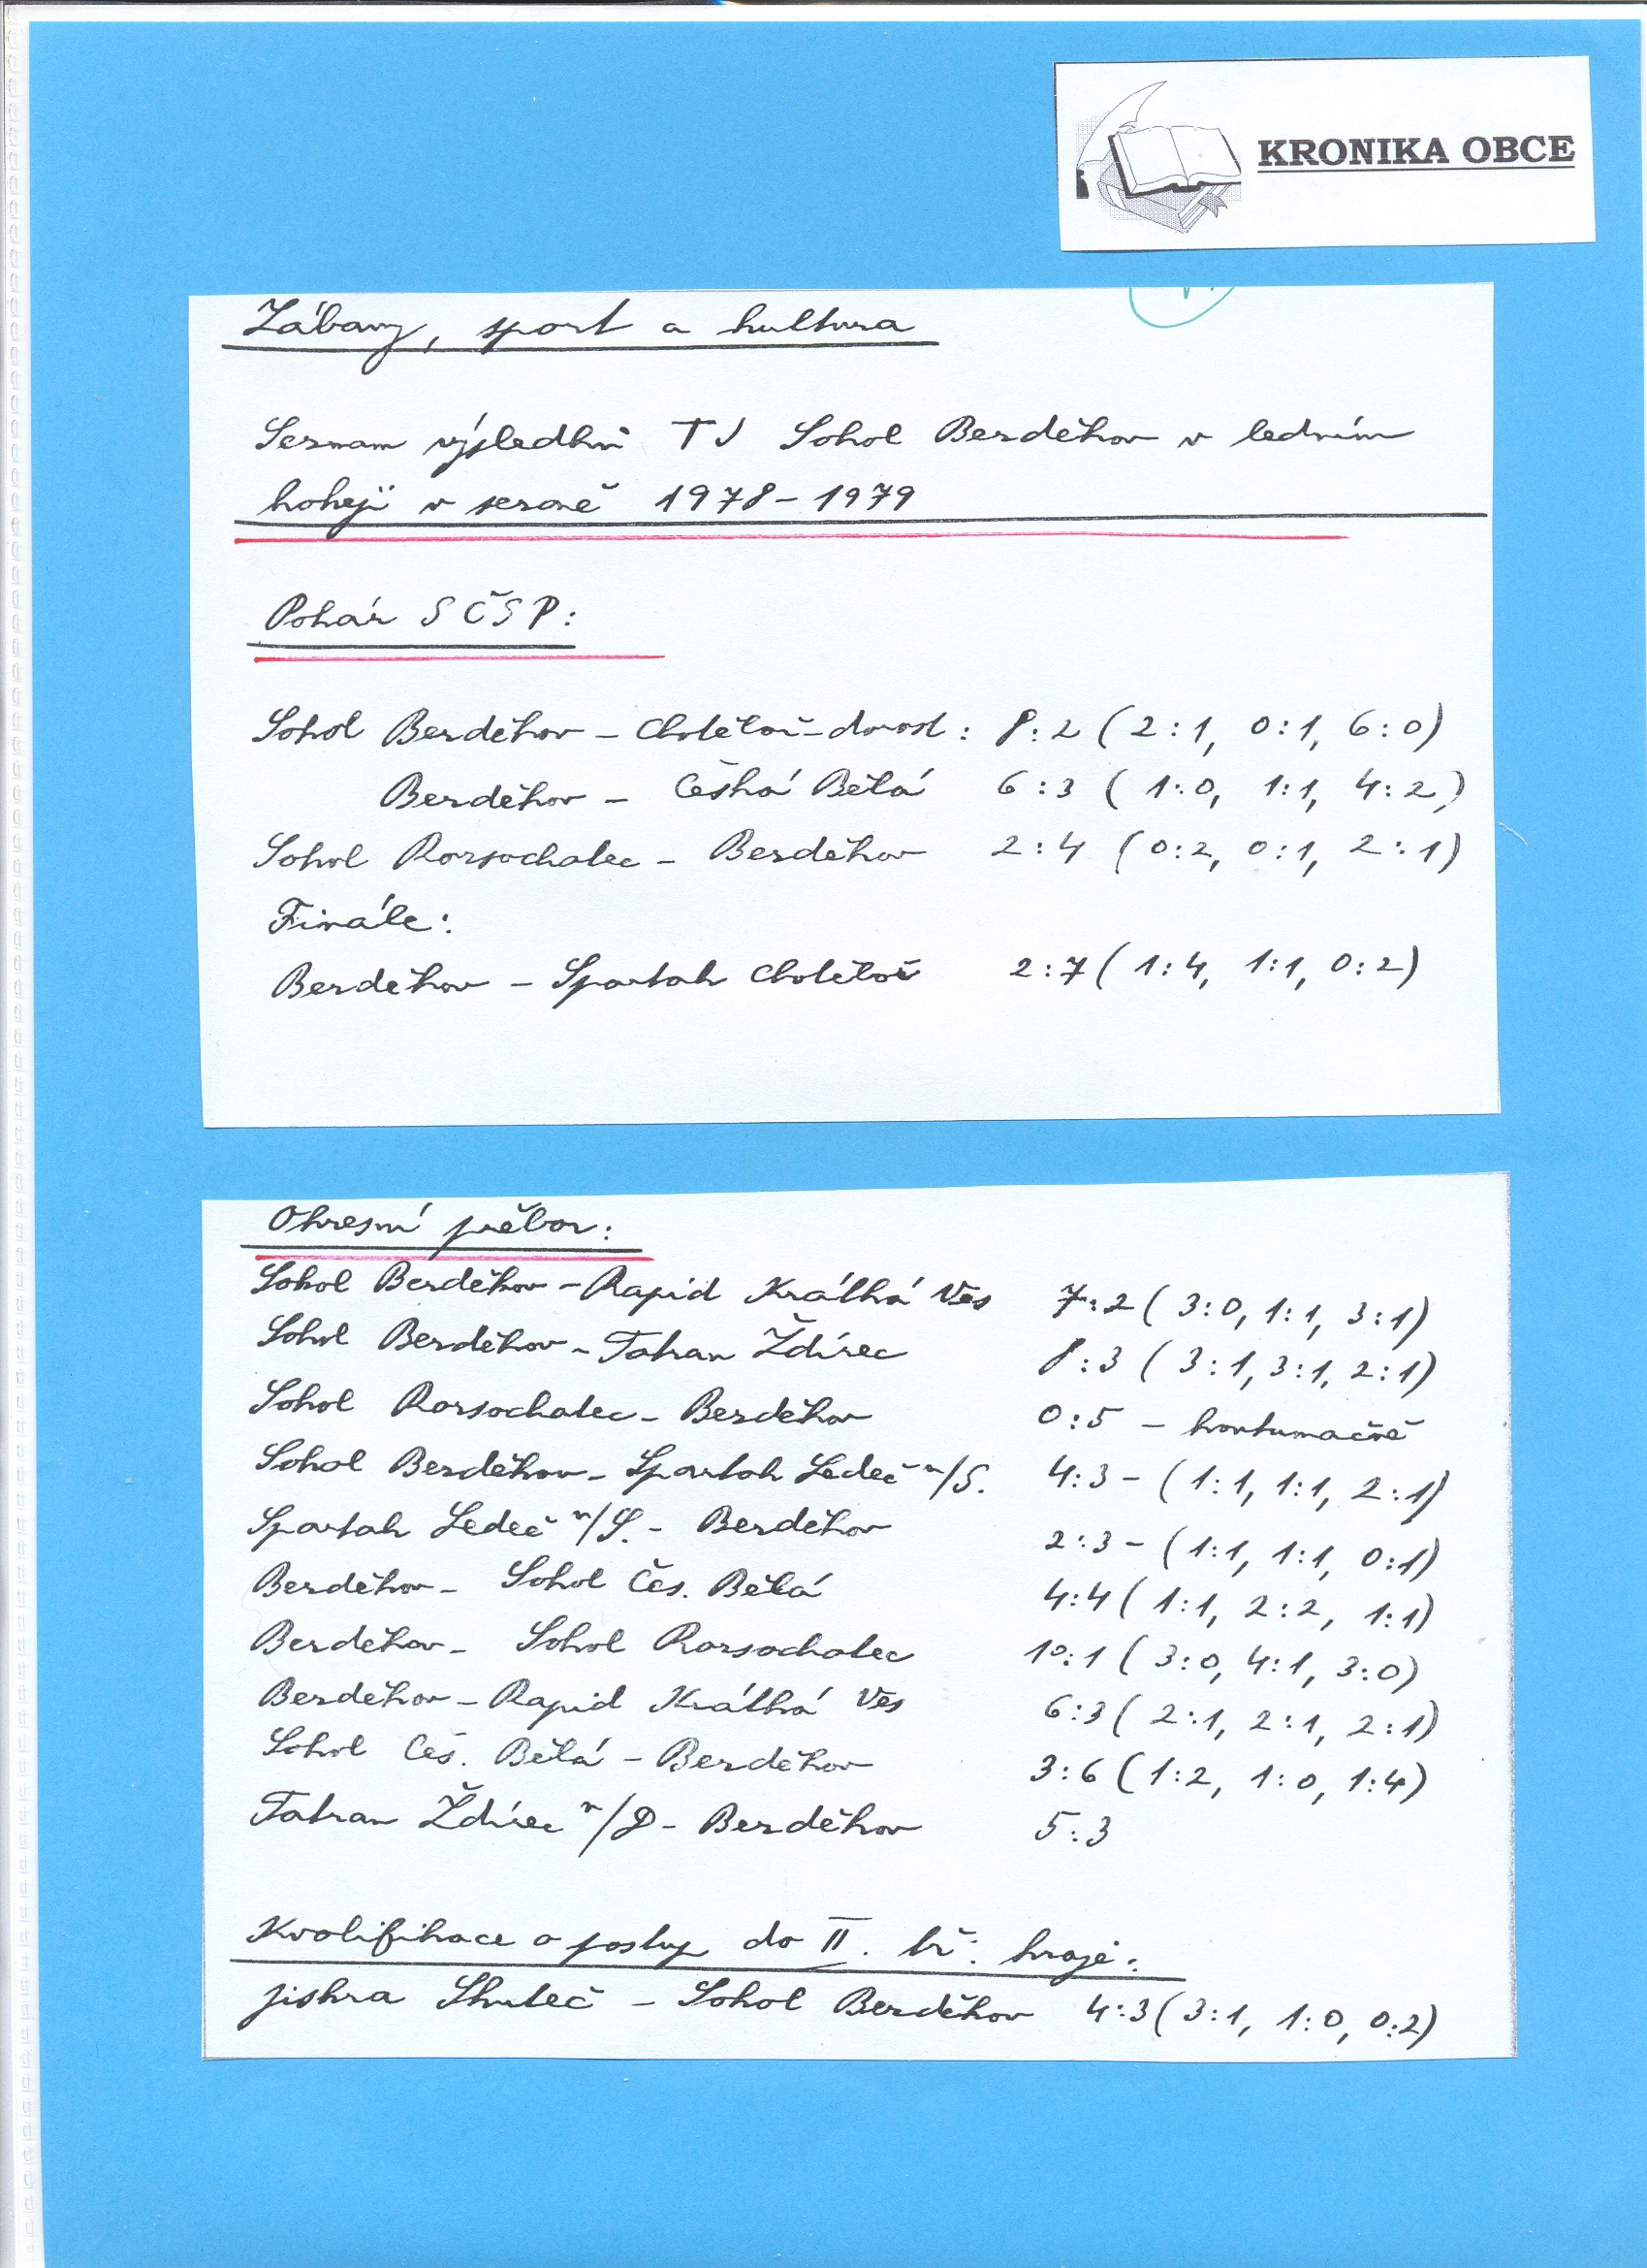 KRONIKA OBCE
Zábavy, sport a kultura
Seznam výsledků TJ Sokol Bezděkov v ledním
hokeji v sezoně 1978-1979
Pohár SČSP:
Sokol Bezděkov - Chotěboř-dorost: 8:2 (2:1, 0:1, 6:0)
Bezděkov - Česká Bělá 6:3 (1:0, 1:1, 4:2)
Sokol Rozsochatec - Bezděkov 2:4 (0:2, 0:1, 2:1)
Finále:
Bezděkov - Spartak Chotěboř 2:7 (1:4, 1:1, 0:2)
Okresní přebor:
Sokol Bezděkov - Rapid Krátká Ves 7:2 (3:0, 1:1, 3:1)
Sokol Bezděkov - Tatran Ždírec 8:3 (3:1, 3:1, 2:1)
Sokol Rozsochatec - Bezděkov 0:5 - kontumačně
Sokol Bezděkov - Spartak Ledeč n/S. 4:3 - (1:1, 1:1, 2:1)
Spartak Ledeč n/S. - Bezděkov 2:3 - (1:1, 1:1, 0:1)
Bezděkov - Sokol Čes. Bělá 4:4 (1:1, 2:2, 1:1)
Bezděkov - Sokol Rozsochatec 10:1 (3:0, 4:1, 3:0)
Bezděkov - Rapid Krátká Ves 6:3 (2:1, 2:1, 2:1)
Sokol Čes. Bělá - Bezděkov 3:6 (1:2, 1:0, 1:4)
Tatran Ždírec n/D - Bezděkov 5:3
Kvalifikace o postup do II. tř. kraje:
Jiskra Skuteč - Sokol Bezděkov 4:3 (3:1, 1:0, 0:2)